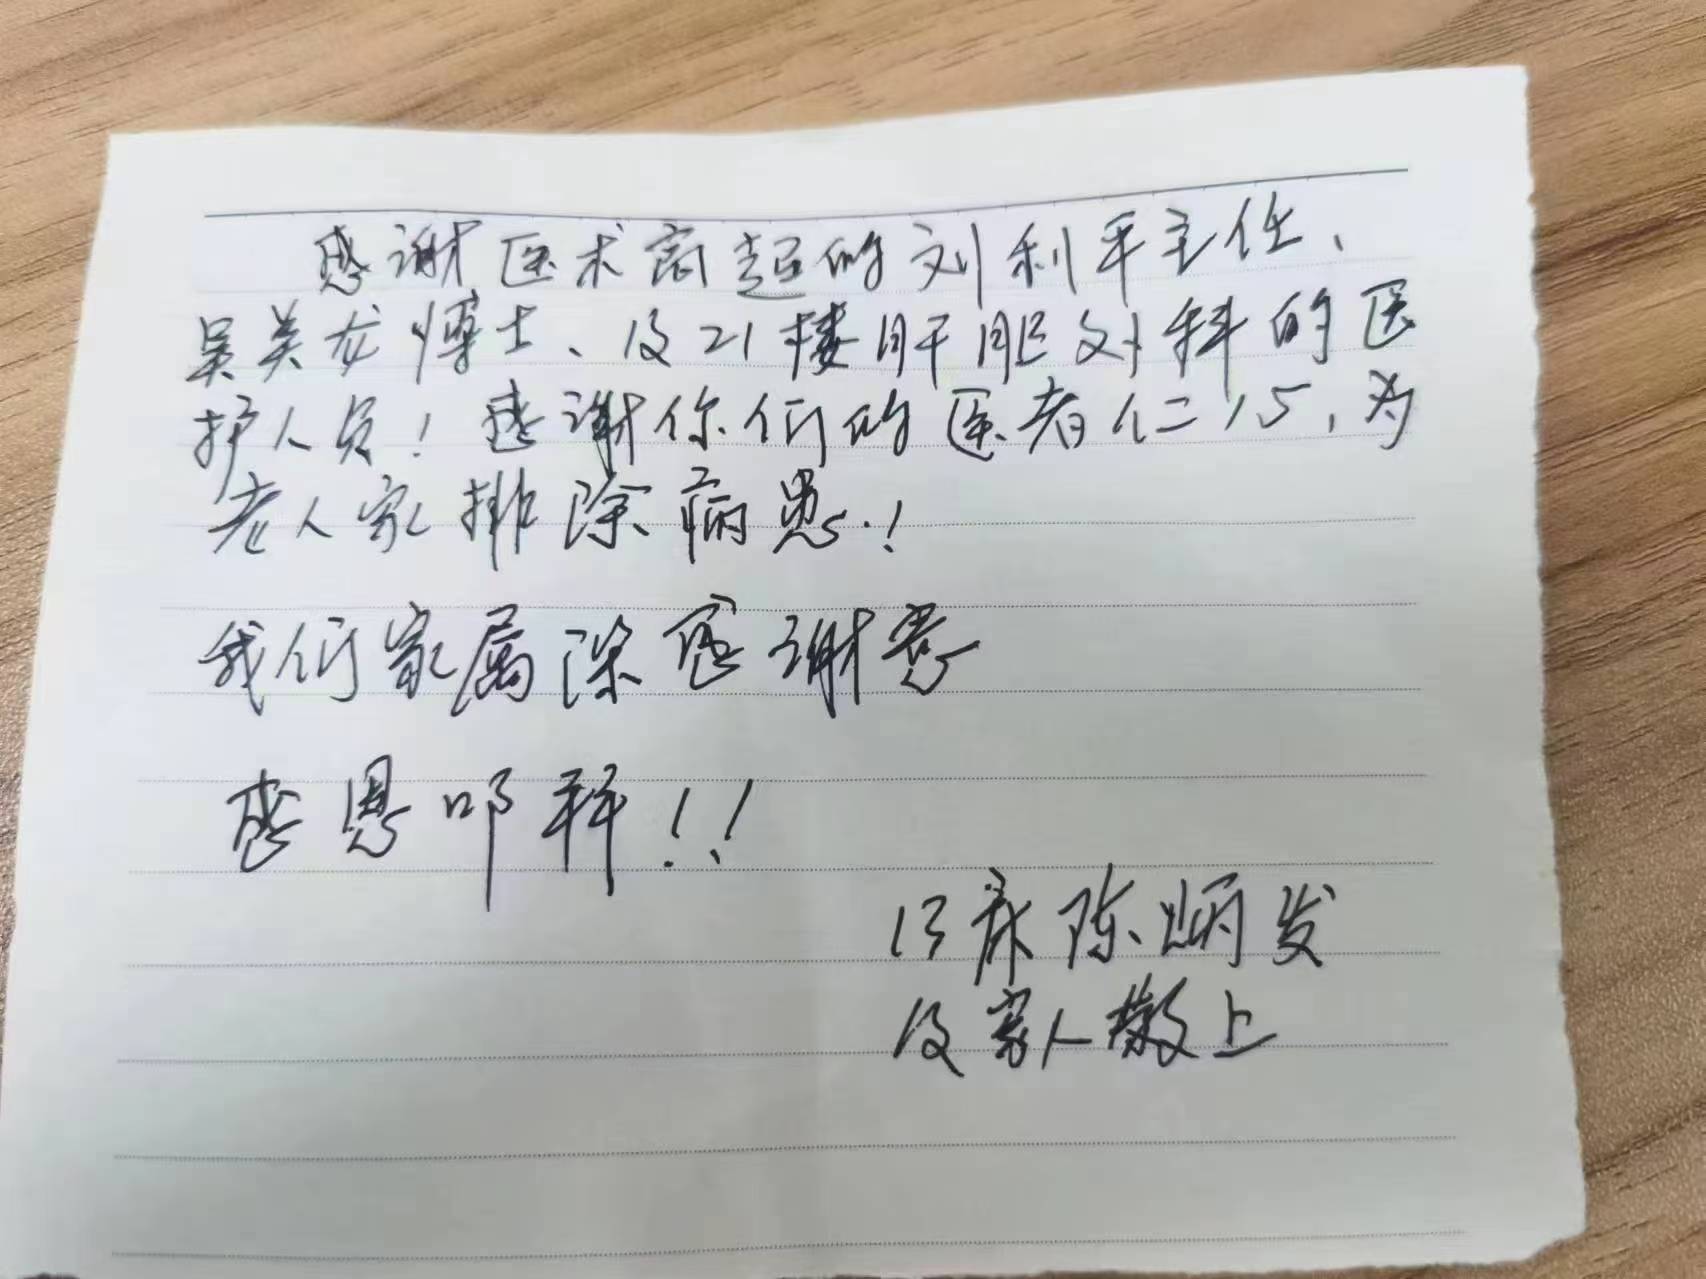 感谢医术高超的刘利平主任、
吴美龙博士、及21楼肝胆外科的医
护人员！感谢你们的医者仁心，为
老人家排除病患！
我们家属深感谢意
感恩叩拜！！
13床陈炳发
及家人敬上